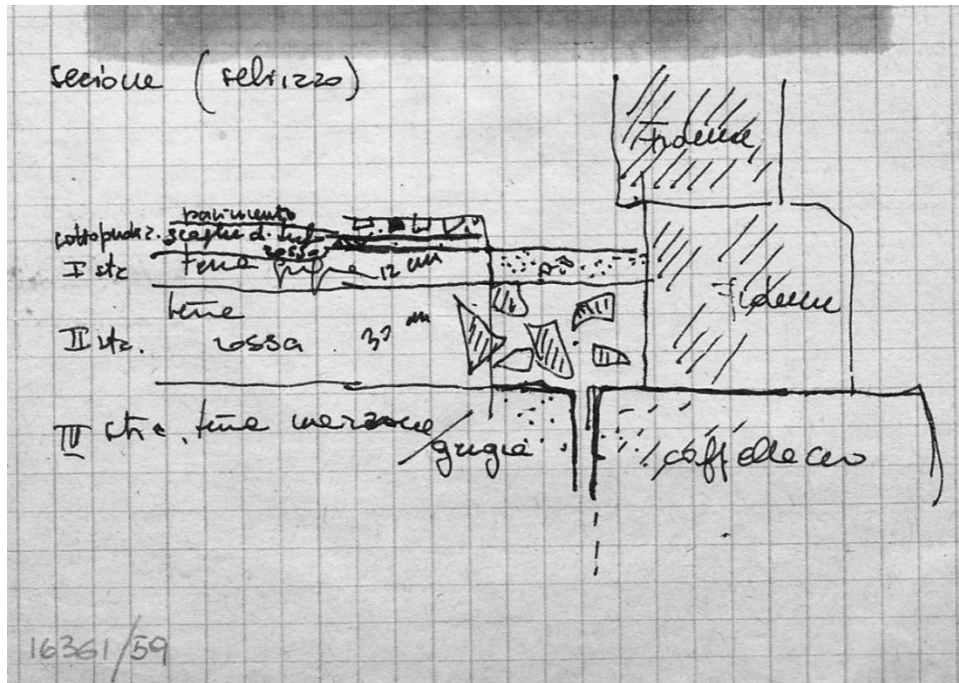 sezione (schizzo)
Fidene
pavimento
scaglie di tufo
rossa
I str. terra grigia 12 cm
terra
II str. rossa 30 cm
Fidene
III str. terra marrone
grigia
cappellaccio
16361/59